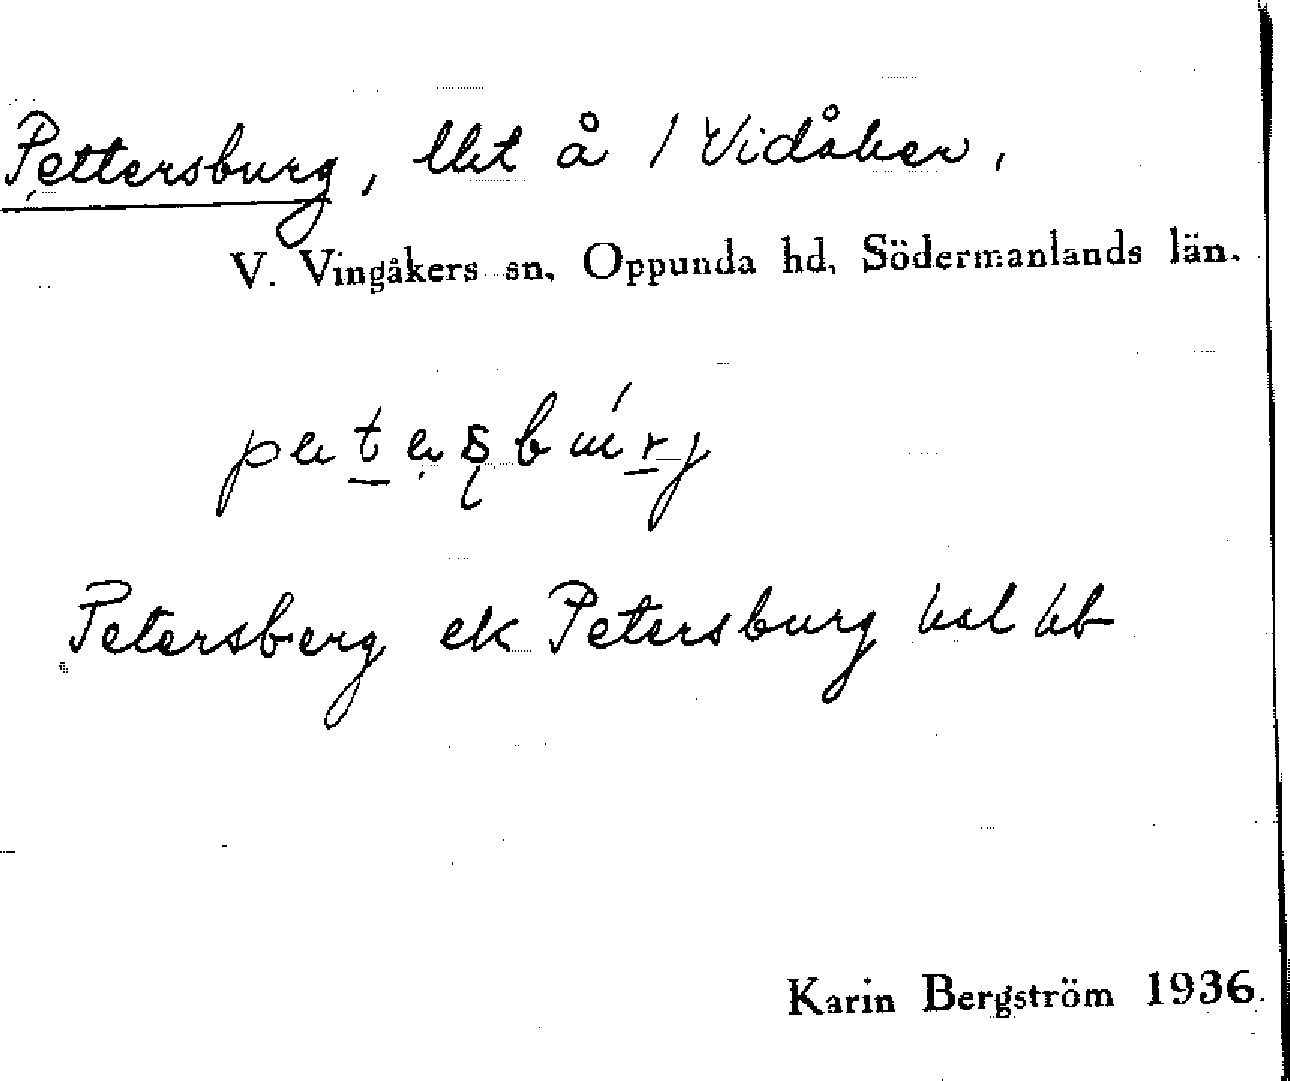 Pettersburg, lht å 1 Vidåker,
V. Vingåkers sn, Oppunda hd, Södermanlands län.
Petersberg ek Petersburg hsl hb
Karin Bergström 1936.